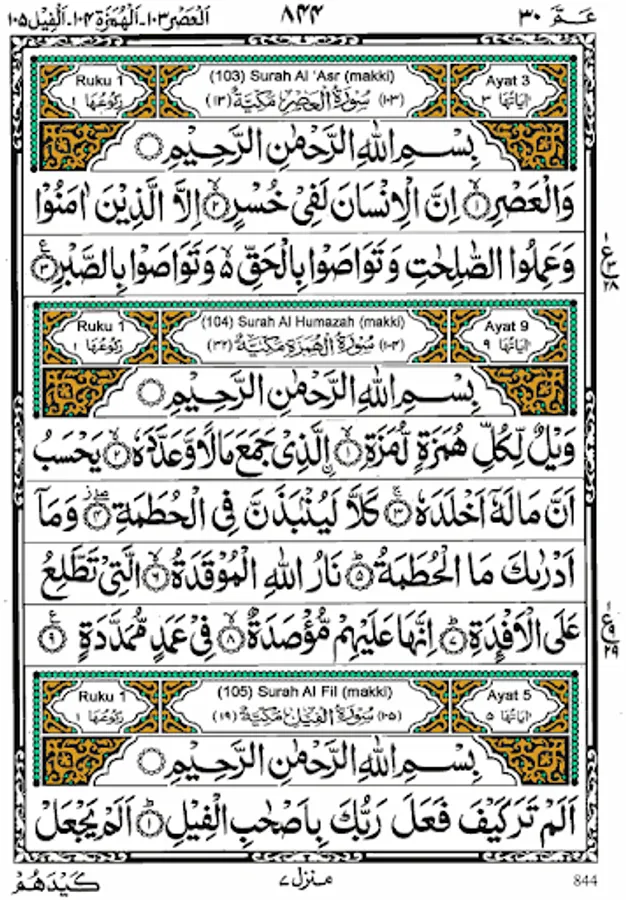 عـمّ ٣٠ ٨٤٤ العصر ١٠٣۔ الهمزة ١٠٤۔ الفيل ١٠٥
Ayat 3 (103) Surah Al 'Asr (makki) Ruku 1
اٰيَاتُهَا ٣ (١٠٣) سُوْرَةُ الْعَصْرِ مَكِّيَّةٌ (١٣) رُكُوْعُهَا ١
بِسْمِ اللّٰهِ الرَّحْمٰنِ الرَّحِيْمِ
وَالْعَصْرِ ۙ‏﴿١﴾ اِنَّ الْاِنْسَانَ لَفِىْ خُسْرٍ ۙ‏﴿٢﴾ اِلَّا الَّذِيْنَ اٰمَنُوْا
وَعَمِلُوا الصّٰلِحٰتِ وَتَوَاصَوْا بِالْحَقِّ ۙ۬ وَتَوَاصَوْا بِالصَّبْرِ ﴿٣﴾
ع ٢٨
Ayat 9 (104) Surah Al Humazah (makki) Ruku 1
اٰيَاتُهَا ٩ (١٠٤) سُوْرَةُ الْهُمَزَةِ مَكِّيَّةٌ (٣٢) رُكُوْعُهَا ١
بِسْمِ اللّٰهِ الرَّحْمٰنِ الرَّحِيْمِ
وَيْلٌ لِّكُلِّ هُمَزَةٍ لُّمَزَةِ ۙ‏﴿١﴾ اۨلَّذِىْ جَمَعَ مَالًا وَّعَدَّدَهٗ ۙ‏﴿٢﴾ يَحْسَبُ
اَنَّ مَالَهٗۤ اَخْلَدَهٗ ۚ‏﴿٣﴾ كَلَّا لَيُنْۢبَذَنَّ فِى الْحُطَمَةِ ۖ‏﴿٤﴾ وَمَاۤ
اَدْرٰىكَ مَا الْحُطَمَةُ ؕ‏﴿٥﴾ نَارُ اللّٰهِ الْمُوْقَدَةُ ۙ‏﴿٦﴾ الَّتِىْ تَطَّلِعُ
عَلَى الْاَفْـِٕدَةِ ؕ‏﴿٧﴾ اِنَّهَا عَلَيْهِمْ مُّؤْصَدَةٌ ۙ‏﴿٨﴾ فِىْ عَمَدٍ مُّمَدَّدَةٍ ﴿٩﴾
ع ٩ ٢٩
Ayat 5 (105) Surah Al Fil (makki) Ruku 1
اٰيَاتُهَا ٥ (١٠٥) سُوْرَةُ الْفِيْلِ مَكِّيَّةٌ (١٩) رُكُوْعُهَا ١
بِسْمِ اللّٰهِ الرَّحْمٰنِ الرَّحِيْمِ
اَلَمْ تَرَ كَيْفَ فَعَلَ رَبُّكَ بِاَصْحٰبِ الْفِيْلِ ؕ‏﴿١﴾ اَلَمْ يَجْعَلْ
844 منزل ٧ كَيْدَهُمْ